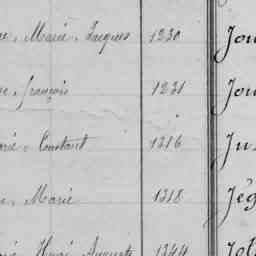 Marie, Jacques 1230 Jou
françois 1231 Jou
Constant 1316 Ju
Marie 1318 Jég
Henri Auguste 1344 Jol